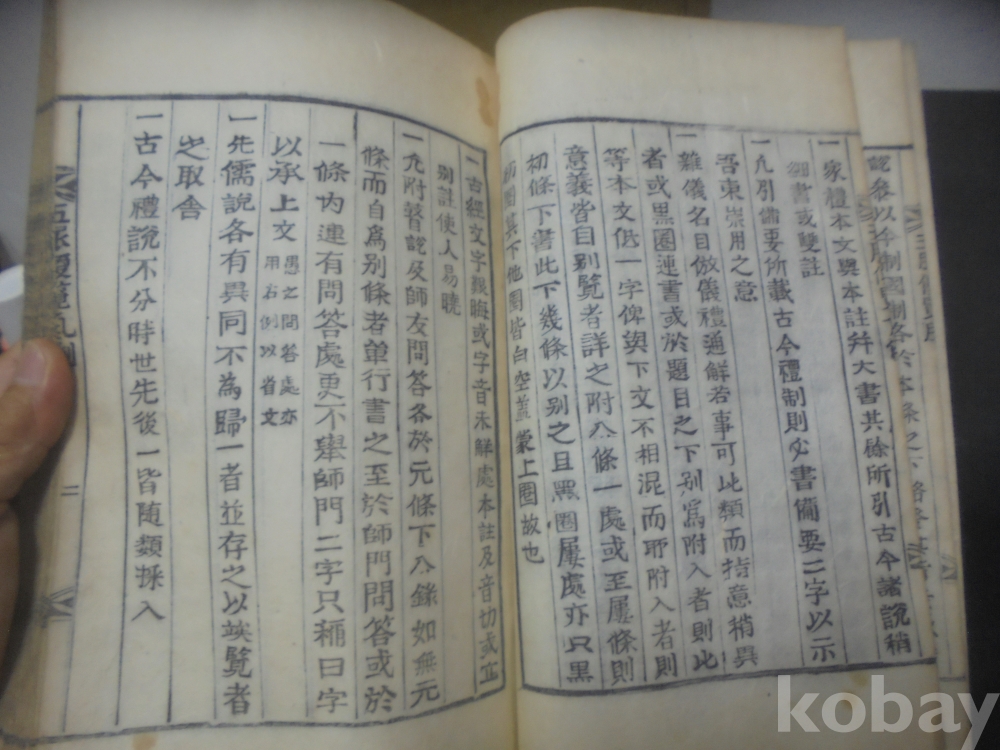 一家禮本文與本註幷大書其餘所引古今諸說稍
細書或雙註
一凡引備要所載古今禮制則必書備要二字以示
吾東崇用之意
一雜儀名目倣儀禮通解若事可此類而指意稍異
者或黑圈連書或於題目之下別寫附入者則此
等本文低一字俾與下文不相混而耶附入者則
意義皆自別覽者詳之附入條一處或至屢條則
初條下書此下幾條以別之且黑圈屢處亦只黑
圈其下他圈皆白空盖蒙上圈故也
一古經文字艱晦或字音未鮮處本註及音切或
別註使人易曉
一凡附諸說及師友問答各於元條下入錄如無元
條而自爲別條者單行書之至於師門問答或於
一條內連有問答處更不擧師門二字只稱曰字
以承上文愚之問答處亦用右例以省文
一先儒說各有異同不為歸一者並存之以竢覽者
之取舍
一古今禮說不分時世先後一皆随類採入
kobay